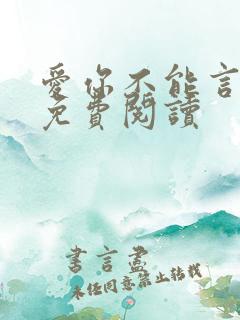 愛你不能言
免費閱讀
書言盡
未經同意禁止轉載